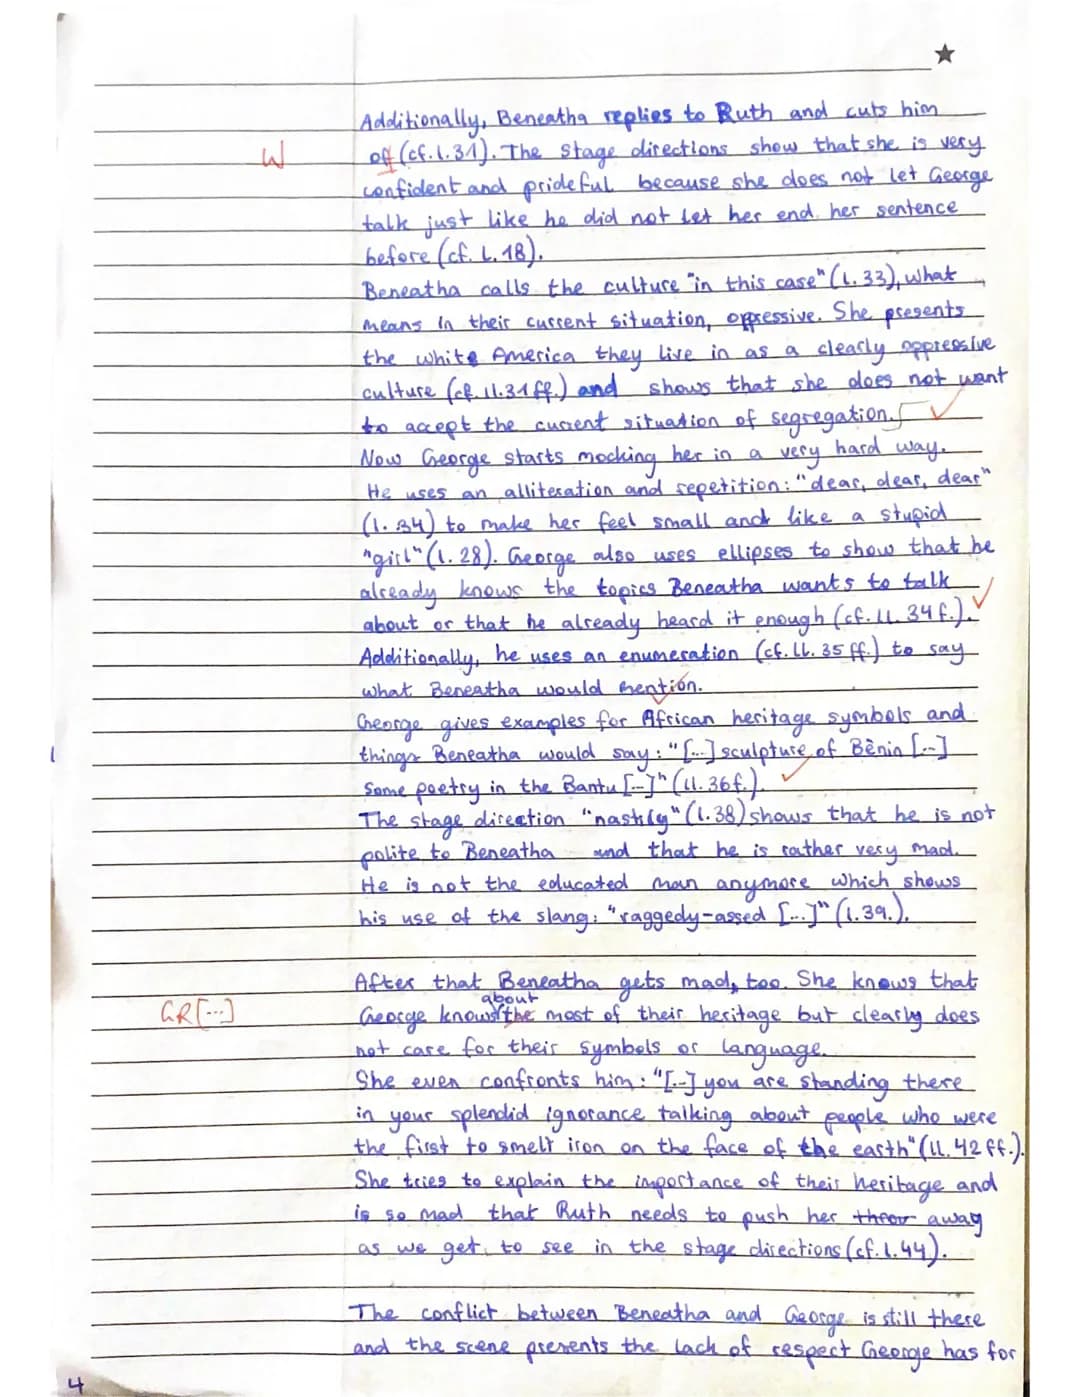 Additionally, Beneatha replies to Ruth and cuts him
W of (cf. l. 31). The stage directions show that she is very
confident and prideful because she does not let George
talk just like he did not let her end her sentence
before (cf. L. 18).
Beneatha calls the culture "in this case" (l. 33), what
means in their current situation, oppressive. She presents
the white America they live in as a clearly oppressive
culture (cf. ll. 31 ff.) and shows that she does not want
to accept the current situation of segregation.
Now George starts mocking her in a very hard way.
He uses an alliteration and repetition: "dear, dear, dear"
(l. 34) to make her feel small and like a stupid
"girl" (l. 28). George also uses ellipses to show that he
already knows the topics Beneatha wants to talk
about or that he already heard it enough (cf. LL. 34 f.).
Additionally, he uses an enumeration (cf. LL. 35 ff.) to say
what Beneatha would mention.
George gives examples for African heritage symbols and
things Beneatha would say: "[...] sculpture of Bénin [...]
Some poetry in the Bantu [...]" (ll. 36f.).
The stage direction "nastily" (l. 38) shows that he is not
polite to Beneatha and that he is rather very mad.
He is not the educated man anymore which shows
his use of the slang: "raggedy-assed [...]" (l. 39.).
After that Beneatha gets mad, too. She knows that
about
GR[...] George knows the most of their heritage but clearly does
not care for their symbols or language.
She even confronts him: "[...] you are standing there
in your splendid ignorance talking about people who were
the first to smelt iron on the face of the earth" (ll. 42 ff.).
She tries to explain the importance of their heritage and
is so mad that Ruth needs to push her throw away
as we get to see in the stage directions (cf. l. 44).
The conflict between Beneatha and George is still there
and the scene presents the lack of respect George has for
4